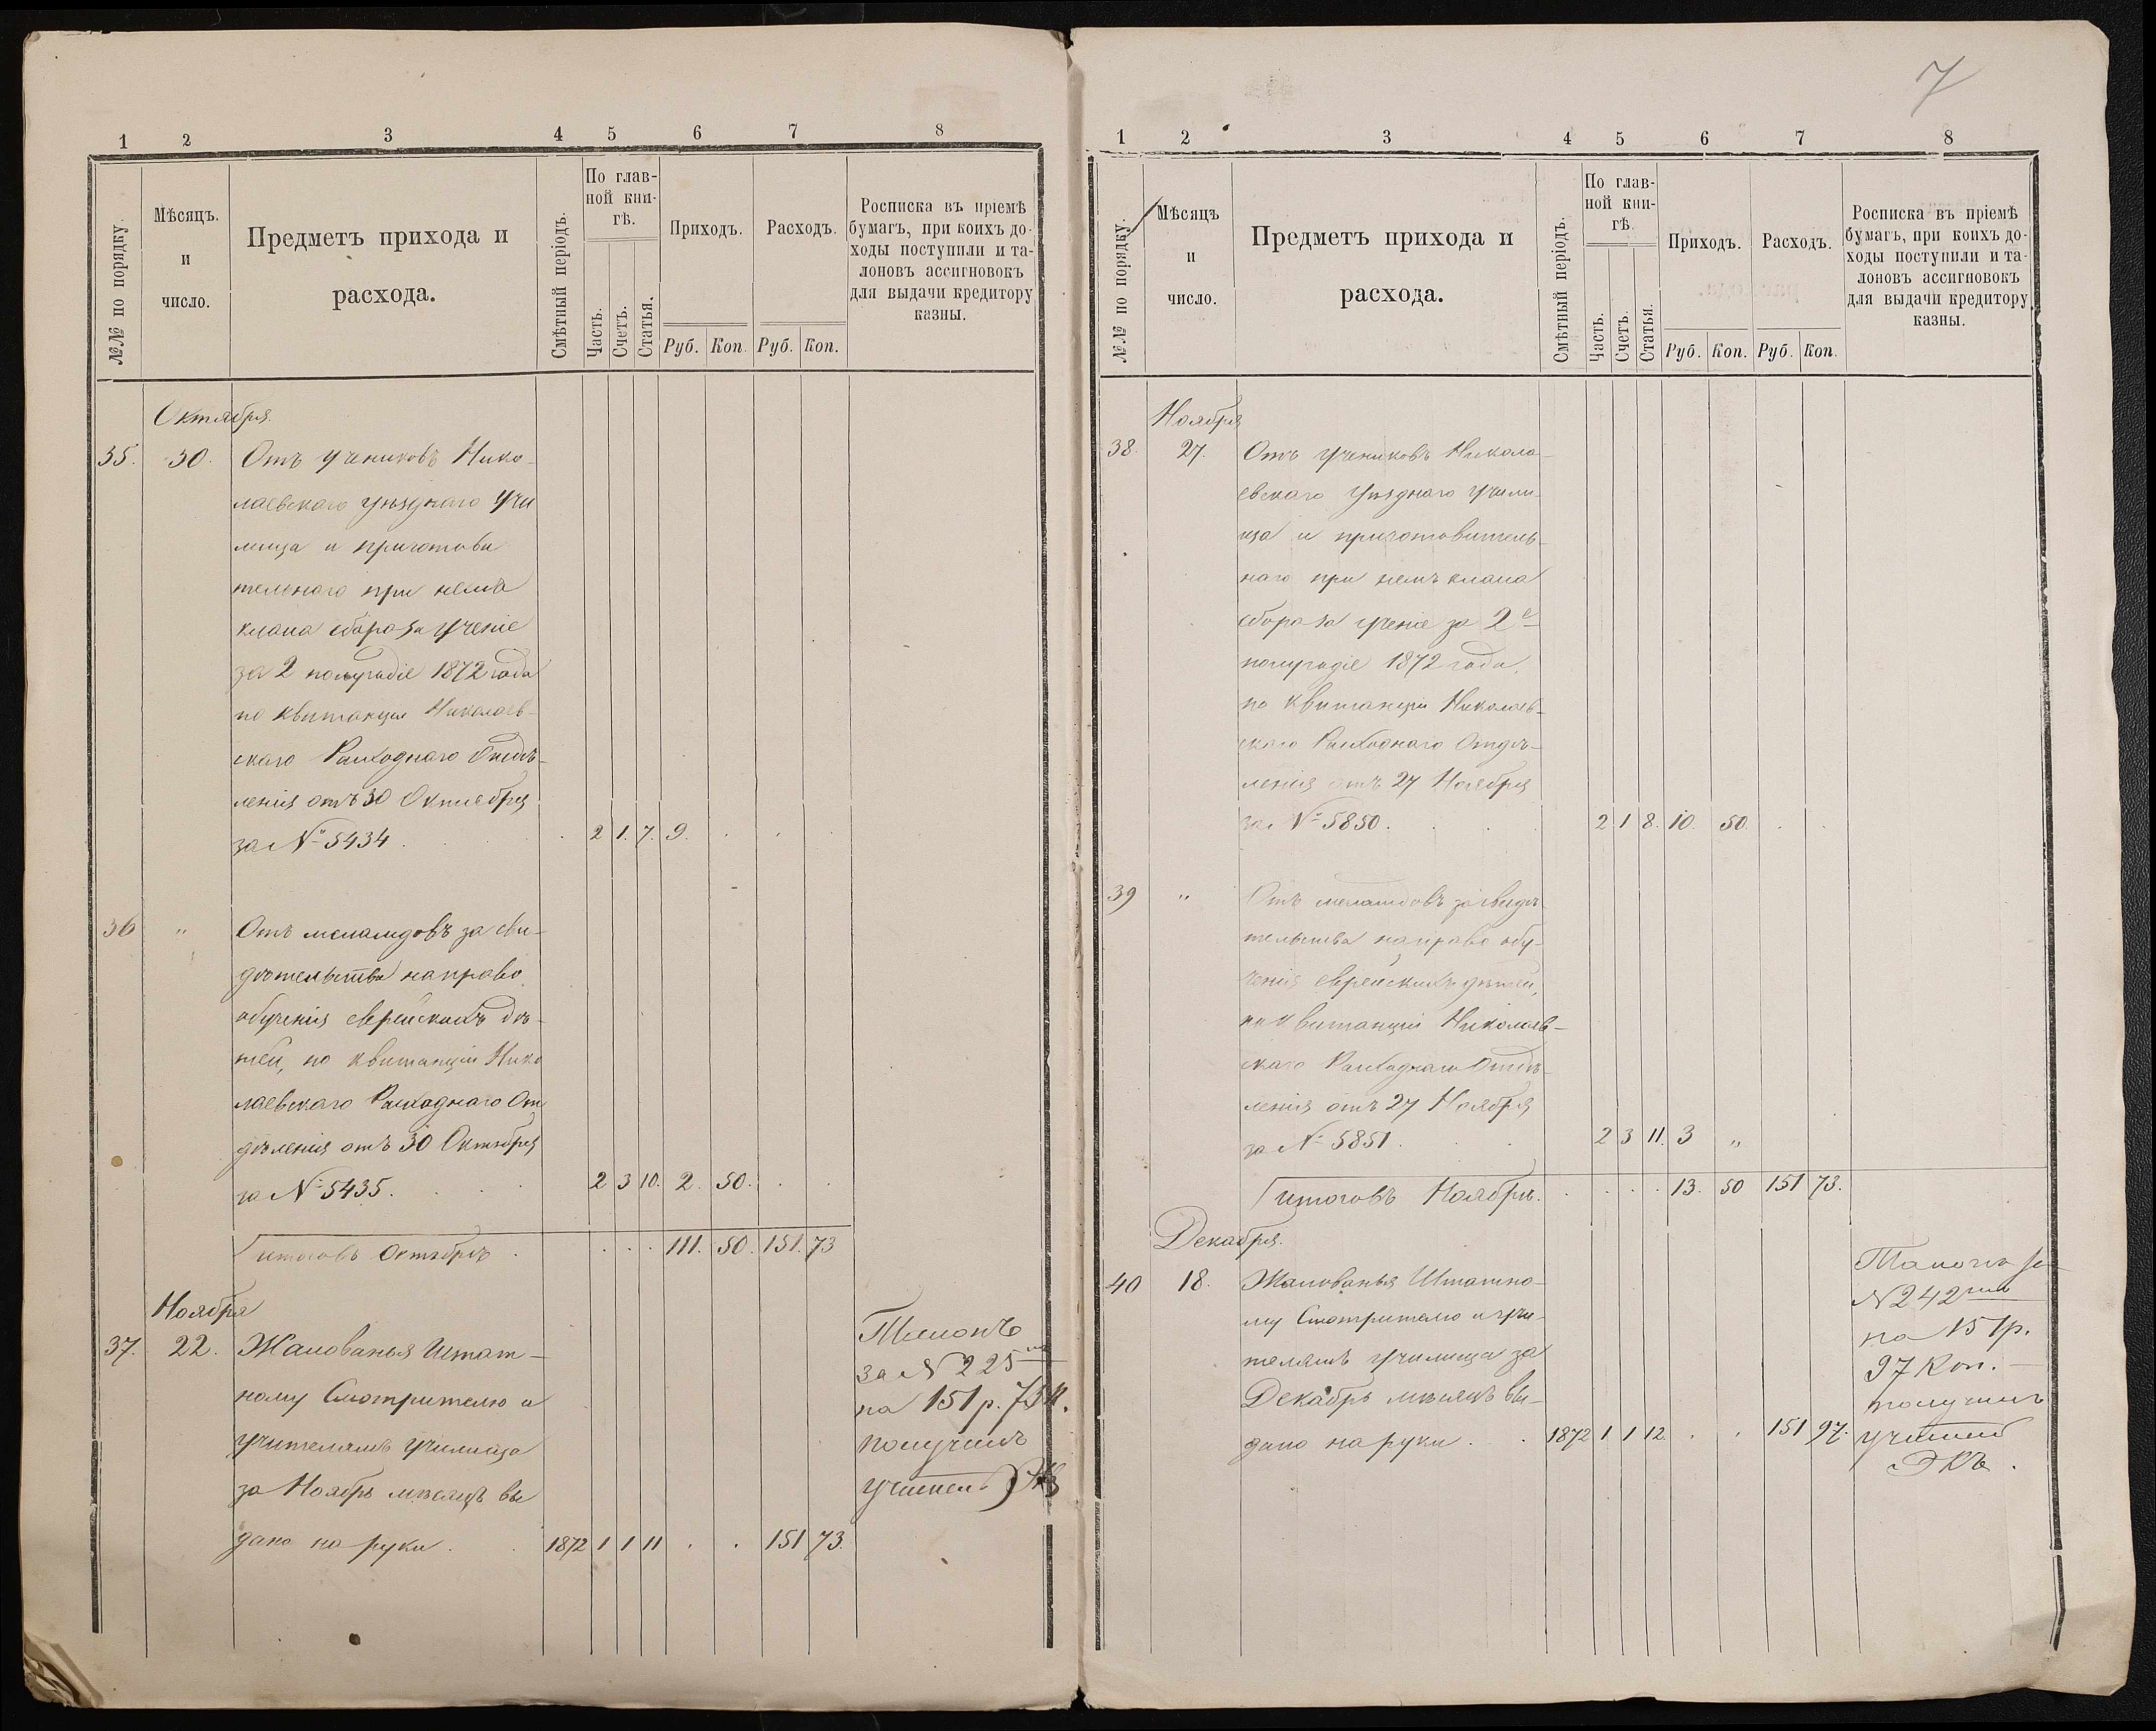 1 2 3 4 5 6 7 8
№№ по порядку.
Мѣсяцъ.
и
число.
Предметъ прихода и
расхода.
Смѣтный періодъ.
По глав-
ной кни-
гѣ.
Часть.
Счетъ.
Статья.
Приходъ.
Руб. Коп.
Расходъ.
Руб. Коп.
Росписка въ пріемѣ
бумагъ, при коихъ до-
ходы поступили и та-
лоновъ ассигновокъ
для выдачи кредитору
казны.
Октября.
35. 30. Отъ учениковъ Нико-
лаевскаго уѣзднаго Учи
лища и приготови
тельнаго при немъ
класса сбора за ученіе
за 2 полугодіе 1872 года
по квитанціи Николаев-
скаго Расходнаго Отдѣ-
ленія отъ 30 Октября
за № 5434 . . 2 1. 7. 9. . . .
36 " Отъ меламдовъ за сви-
дѣтельства на право
обученія еврейскихъ дѣ-
тей, по квитанціи Нико
лаевскаго Расходнаго От
дѣленія отъ 30 Октября
за № 5435. . . . 2 3 10. 2. 50. . .
Итоговъ Октябрь . . . . 111. 50. 151. 73
Ноября
37. 22. Жалованья Штат-
ному Смотрителю и
учителямъ училища
за Ноябрь мѣсяцъ вы
дано на руки . . 1872 1 1 11 . . 151 73.
Талонъ
за № 225
на 151 р. 73 к.
получилъ
учитель Экъ
7
1 2 3 4 5 6 7 8
№№ по порядку.
Мѣсяцъ
и
число.
Предметъ прихода и
расхода.
Смѣтный періодъ.
По глав-
ной кни-
гѣ.
Часть.
Счетъ.
Статья.
Приходъ.
Руб. Коп.
Расходъ.
Руб. Коп.
Росписка въ пріемѣ
бумагъ, при коихъ до-
ходы поступили и та-
лоновъ ассигновокъ
для выдачи кредитору
казны.
Ноября
38. 27. Отъ учениковъ Никола-
евскаго Уѣзднаго учили-
ща и приготовитель-
наго при немъ класса
сбора за ученіе за 2е
полугодіе 1872 года.
по квитанціи Николаев-
скаго Расходнаго Отдѣ-
ленія отъ 27 Ноября
за № 5850. . . . 2 1 8. 10. 50. . .
39 " Отъ меламдовъ за свидѣ
тельства на право обу-
ченія еврейскихъ дѣтей,
по квитанціи Николаев-
скаго Расходнаго Отдѣ-
ленія отъ 27 Ноября
за № 5851. . . 2 3 11. 3 "
Итоговъ Ноябрь. . . . . 13. 50 151 73.
Декабря.
40 18. Жалованья Штатно-
му Смотрителю и учи-
телямъ училища за
Декабрь мѣсяцъ вы-
дано на руки . . 1872 1 1 12. . . 151 97.
Талонъ за
№ 242
на 151 р.
97 Коп. —
получилъ
учитель
Экъ .